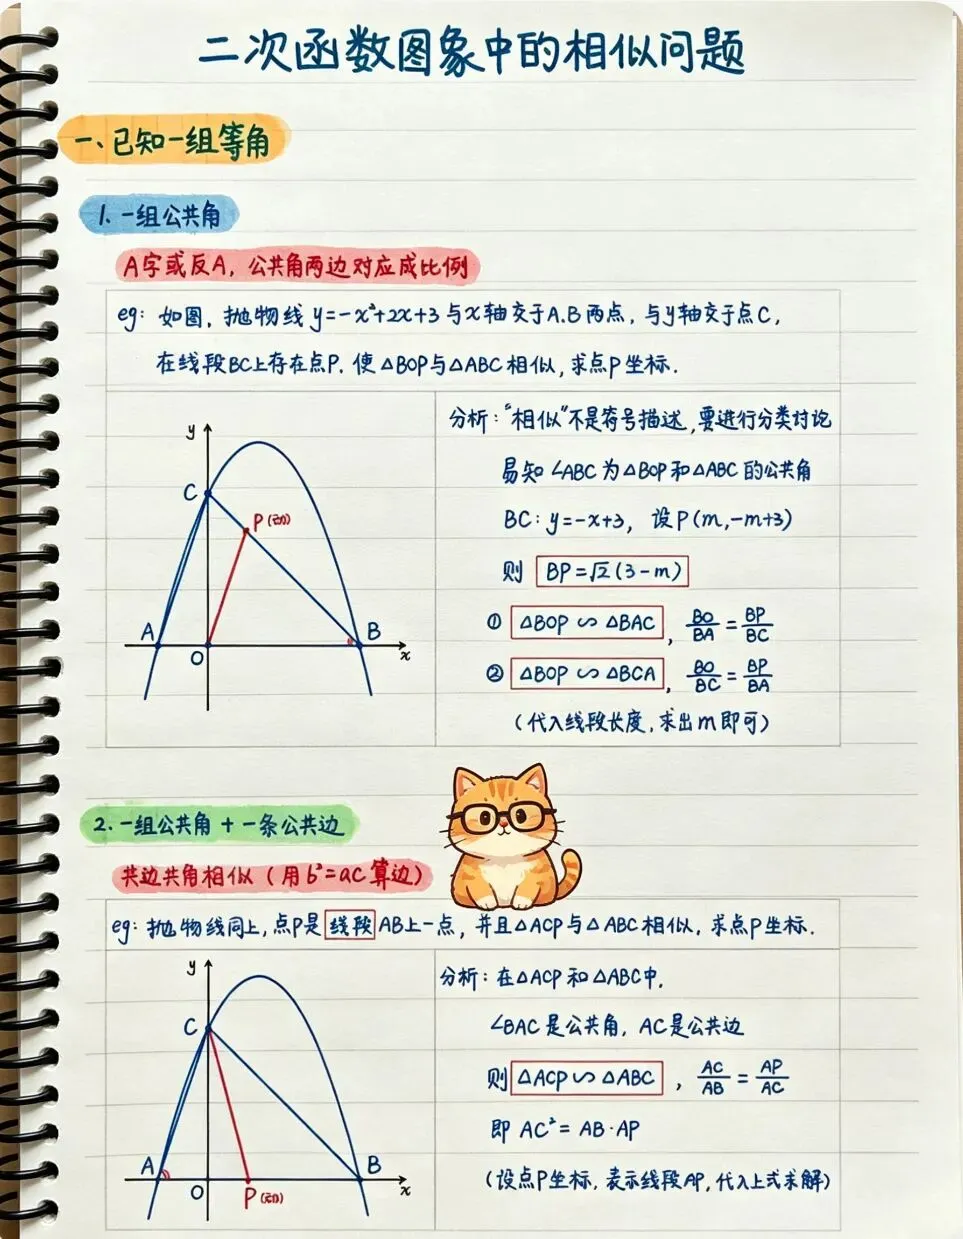 二次函数图象中的相似问题
一、已知一组等角
1. 一组公共角
A字或反A, 公共角两边对应成比例
eg: 如图, 抛物线 y=-x²+2x+3 与x轴交于A.B两点, 与y轴交于点C,
在线段BC上存在点P. 使 △BOP与△ABC 相似, 求点P坐标.
y
C
P(动)
A
O
B
x
分析: "相似"不是符号描述, 要进行分类讨论
易知 ∠ABC 为 △BOP 和 △ABC 的公共角
BC: y=-x+3, 设 P(m,-m+3)
则 BP=√2(3-m)
① △BOP ∽ △BAC, BO/BA = BP/BC
② △BOP ∽ △BCA, BO/BC = BP/BA
(代入线段长度, 求出m即可)
2. 一组公共角 + 一条公共边
共边共角相似 (用 b²=ac 算边)
eg: 抛物线同上, 点P是线段AB上一点, 并且△ACP 与 △ABC 相似, 求点P坐标.
y
C
A
O
P(动)
B
x
分析: 在△ACP 和 △ABC中.
∠BAC 是公共角, AC是公共边
则 △ACP ∽ △ABC, AC/AB = AP/AC
即 AC² = AB·AP
(设点P坐标, 表示线段AP, 代入上式求解)